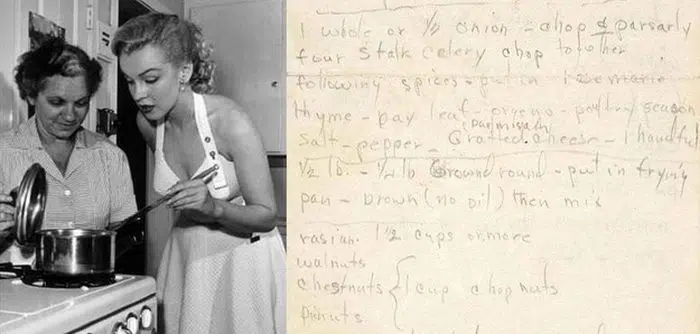 1 whole or 1/2 onion - chop & parsarly
four stalk celery chop together
following spices - put in rosemarie
thyme - bay leaf - oregeno - poltry season
salt - pepper - Grated parmisian cheese - 1 handful
1/2 lb. - 1/4 lb Ground round - put in frying
pan - brown (no oil) then mix
rasian. 1 1/2 cups or more
walnuts
chestnuts { 1 cup chop nuts
pinuts